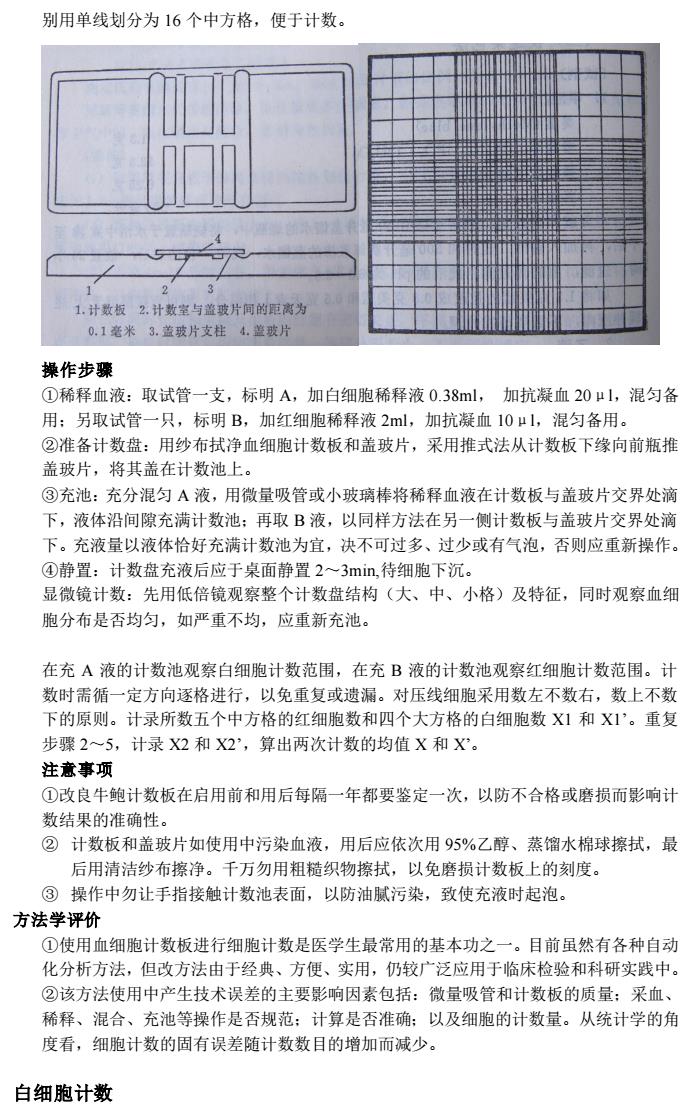 别用单线划分为 16 个中方格，便于计数。
4
1
2
3
1.计数板 2.计数室与盖玻片间的距离为
0.1 毫米 3.盖玻片支柱 4.盖玻片
操作步骤
①稀释血液：取试管一支，标明 A，加白细胞稀释液 0.38ml， 加抗凝血 20μl，混匀备
用；另取试管一只，标明 B，加红细胞稀释液 2ml，加抗凝血 10μl，混匀备用。
②准备计数盘：用纱布拭净血细胞计数板和盖玻片，采用推式法从计数板下缘向前瓶推
盖玻片，将其盖在计数池上。
③充池：充分混匀 A 液，用微量吸管或小玻璃棒将稀释血液在计数板与盖玻片交界处滴
下，液体沿间隙充满计数池；再取 B 液，以同样方法在另一侧计数板与盖玻片交界处滴
下。充液量以液体恰好充满计数池为宜，决不可过多、过少或有气泡，否则应重新操作。
④静置：计数盘充液后应于桌面静置 2～3min,待细胞下沉。
显微镜计数：先用低倍镜观察整个计数盘结构（大、中、小格）及特征，同时观察血细
胞分布是否均匀，如严重不均，应重新充池。
在充 A 液的计数池观察白细胞计数范围，在充 B 液的计数池观察红细胞计数范围。计
数时需循一定方向逐格进行，以免重复或遗漏。对压线细胞采用数左不数右，数上不数
下的原则。计录所数五个中方格的红细胞数和四个大方格的白细胞数 X1 和 X1’。重复
步骤 2～5，计录 X2 和 X2’，算出两次计数的均值 X 和 X’。
注意事项
①改良牛鲍计数板在启用前和用后每隔一年都要鉴定一次，以防不合格或磨损而影响计
数结果的准确性。
② 计数板和盖玻片如使用中污染血液，用后应依次用 95%乙醇、蒸馏水棉球擦拭，最
后用清洁纱布擦净。千万勿用粗糙织物擦拭，以免磨损计数板上的刻度。
③ 操作中勿让手指接触计数池表面，以防油腻污染，致使充液时起泡。
方法学评价
①使用血细胞计数板进行细胞计数是医学生最常用的基本功之一。目前虽然有各种自动
化分析方法，但改方法由于经典、方便、实用，仍较广泛应用于临床检验和科研实践中。
②该方法使用中产生技术误差的主要影响因素包括：微量吸管和计数板的质量；采血、
稀释、混合、充池等操作是否规范；计算是否准确；以及细胞的计数量。从统计学的角
度看，细胞计数的固有误差随计数数目的增加而减少。
白细胞计数